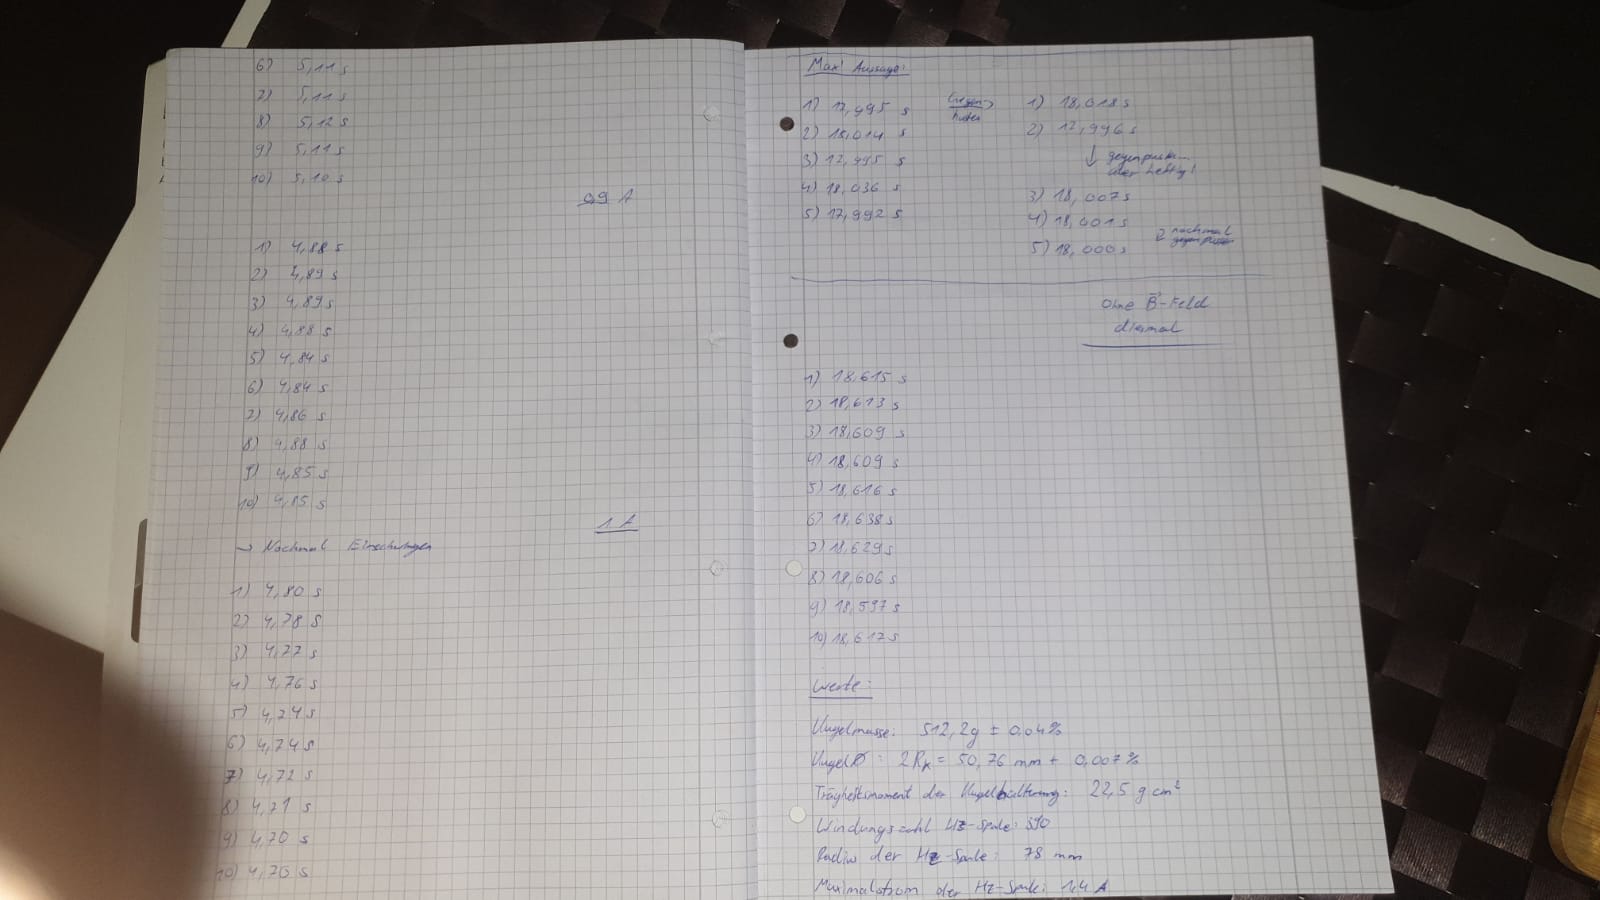 6) 5,11 s
7) 5,11 s
8) 5,12 s
9) 5,11 s
10) 5,10 s
0,9 A
1) 4,88 s
2) 4,89 s
3) 4,89 s
4) 4,88 s
5) 4,84 s
6) 4,84 s
7) 4,86 s
8) 4,88 s
9) 4,85 s
10) 4,85 s
1 A
→ Nochmal
1) 4,80 s
2) 4,78 s
3) 4,77 s
4) 4,76 s
5) 4,74 s
6) 4,74 s
7) 4,72 s
8) 4,71 s
9) 4,70 s
10) 4,76 s
Max!
1) 17,995 s
2) 18,014 s
3) 17,995 s
4) 18,036 s
5) 17,992 s
1) 18,018 s
2) 17,996 s
↓
aber heftig!
3) 18,007 s
4) 18,001 s
5) 18,000 s
nochmal
Ohne B-Feld
diesmal
1) 18,615 s
2) 18,613 s
3) 18,609 s
4) 18,609 s
5) 18,616 s
6) 18,638 s
7) 18,629 s
8) 18,606 s
9) 18,597 s
10) 18,617 s
Werte:
Kugelmasse: 512,2 g ± 0,04 %
Kugel Ø : 2Rₖ = 50,76 mm ± 0,007 %
Trägheitsmoment der Kugelhalterung: 22,5 g cm²
Windungszahl Hz-Spule: 390
Radius der Hz-Spule: 78 mm
Maximalstrom der Hz-Spule: 1,4 A